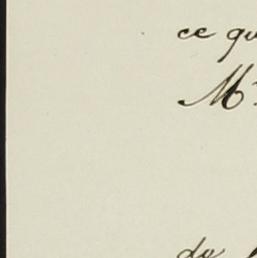 ce qu
M
de